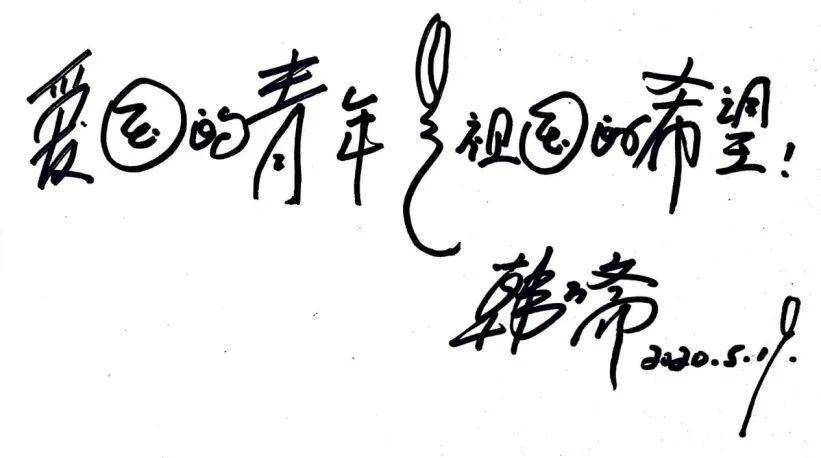 爱国的青年是祖国的希望!
韩
2020.5.19.